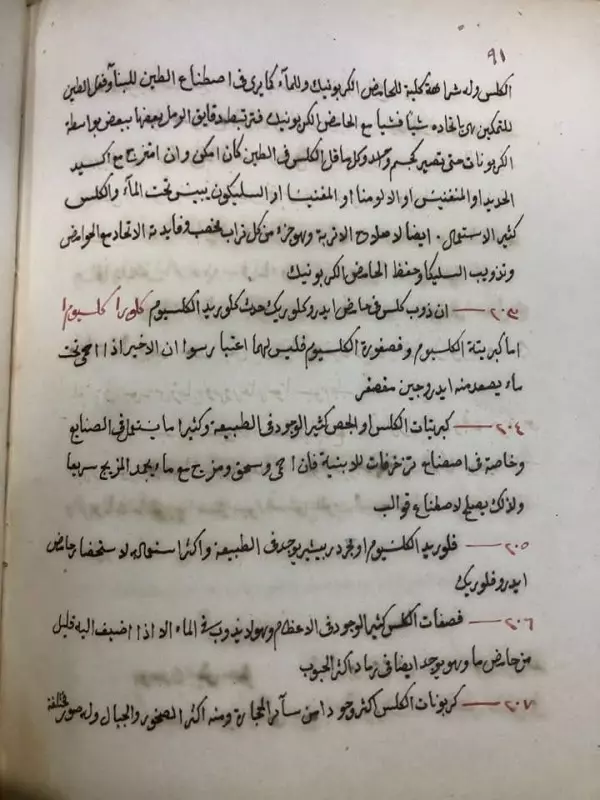 ٩١
الكلس وله شراهة كلية للحامض الكربونيك وللمآء كما يرى في اصطناع الطين للبنآ وفعل الطين
للتمكين بهى باتحاده شيًا فشيا مع الحامض الكربونيك فترتبط دقايق الرمل بعضها ببعض بواسطة
الكربونات حتى تصير كجسم واحد وكل ما قل الكلس في الطين كان امكن وان امتزج مع اكسيد
الحديد او المنغنيس او الالومنا او المغنيسا او السليكون يبيس تحت المآء والكلس
كثير الاستعمال. ايضا لاصلاح الاتربة وهو جزء من كل تراب مخصب وفايدته الاتحاد مع الحوامض
وتذويب السليكا وحفظ الحامض الكربونيك
٢٠٣ — ان ذوب كلس في حامض ايدروكلوريك حدث كلوريد الكلسيوم كلورا كلسيوم
اما كبريتة الكلسيوم وفصفورة الكلسيوم فليس لهما اعتبار سوا ان الاخير اذا احمي تحت
ماء يصعد منه ايدروجين مفصفر
٢٠٤ — كبريتات الكلس او الجص كثير الوجود في الطبيعة وكثيرا ما يستعمل في الصنايع
وخاصة في اصطناع زخرفات للابنية فان احمي وسحق ومزج مع ماء يجمد المزيج سريعا
ولذلك يصلح لاصطناع قوالب
٢٠٥ — فلوريد الكلسيوم او يوجد في الطبيعة واكثر استعماله لاستحضار حامض
ايدروفلوريك
٢٠٦ — فصفات الكلس كثير الوجود في الاعظام وهو لا يذوب في الماء الا اذا اضيف اليه قليل
من حامض ما وهو يوجد ايضا في رماد اكثر الحبوب
٢٠٧ — كربونات الكلس اكثر وجودا من سآئر الحجارة ومنه اكثر الصخور والجبال وله صور مختلفة